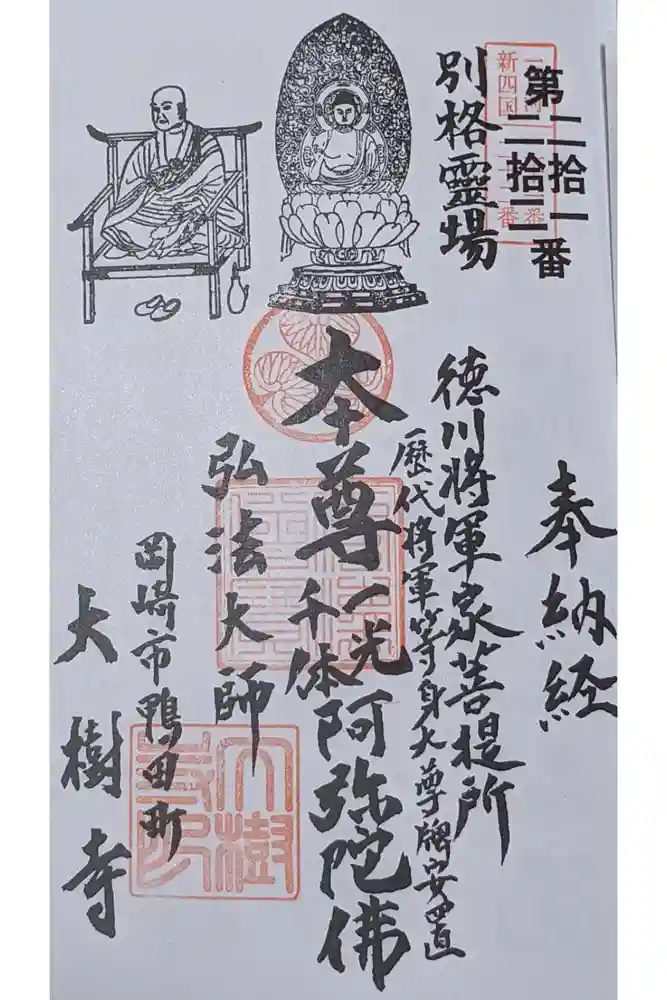 第二拾一
二拾二番
新四国
番
奉納経
別格靈場
徳川將軍家菩提所
歴代將軍等身大尊牌安置
本尊一光千体阿弥陀佛
弘法大師
岡崎市鴨田町
大樹寺
大樹寺印